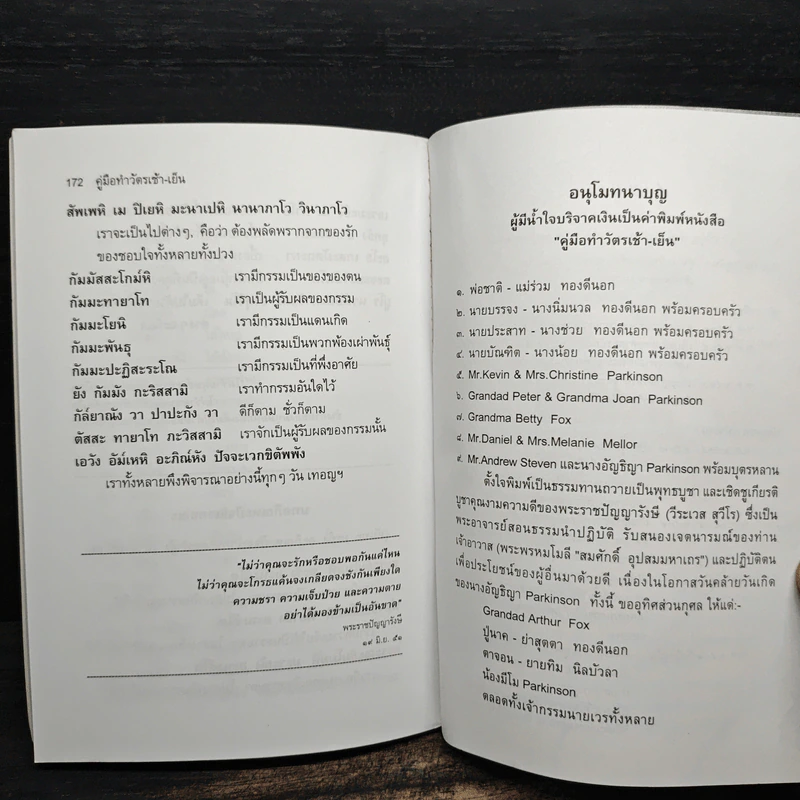 172 คู่มือทำวัตรเช้า-เย็น
สัพเพหิ เม ปิเยหิ มะนาเปหิ นานาภาโว วินาภาโว
เราจะเป็นไปต่างๆ, คือว่า ต้องพลัดพรากจากของรัก
ของชอบใจทั้งหลายทั้งปวง
กัมมัสสะโกม๎หิ เรามีกรรมเป็นของของตน
กัมมะทายาโท เราเป็นผู้รับผลของกรรม
กัมมะโยนิ เรามีกรรมเป็นแดนเกิด
กัมมะพันธุ เรามีกรรมเป็นพวกพ้องเผ่าพันธุ์
กัมมะปะฏิสะระโณ เรามีกรรมเป็นที่พึ่งอาศัย
ยัง กัมมัง กะริสสามิ เราทำกรรมอันใดไว้
กัล๎ยาณัง วา ปาปะกัง วา ดีก็ตาม ชั่วก็ตาม
ตัสสะ ทายาโท ภะวิสสามิ เราจักเป็นผู้รับผลของกรรมนั้น
เอวัง อัม๎เหหิ อะภิณ๎หัง ปัจจะเวกขิตัพพัง
เราทั้งหลายพึงพิจารณาอย่างนี้ทุกๆ วัน เทอญฯ
"ไม่ว่าคุณจะรักหรือชอบพอกันแค่ไหน
ไม่ว่าคุณจะโกรธแค้นจงเกลียดจงชังกันเพียงใด
ความชรา ความเจ็บป่วย และความตาย
อย่าได้มองข้ามเป็นอันขาด"
พระราชปัญญารังษี
๑๙ มิ.ย. ๕๑
อนุโมทนาบุญ
ผู้มีน้ำใจบริจาคเงินเป็นค่าพิมพ์หนังสือ
"คู่มือทำวัตรเช้า-เย็น"
๑. พ่อชาติ - แม่ร่วม ทองดีนอก
๒. นายบรรจง - นางนิ่มนวล ทองดีนอก พร้อมครอบครัว
๓. นายประสาท - นางช่วย ทองดีนอก พร้อมครอบครัว
๔. นายบัณฑิต - นางน้อย ทองดีนอก พร้อมครอบครัว
๕. Mr.Kevin & Mrs.Christine Parkinson
๖. Grandad Peter & Grandma Joan Parkinson
๗. Grandma Betty Fox
๘. Mr.Daniel & Mrs.Melanie Mellor
๙. Mr.Andrew Steven และนางอัญธิญา Parkinson พร้อมบุตรหลาน
ตั้งใจพิมพ์เป็นธรรมทานถวายเป็นพุทธบูชา และเชิดชูเกียรติ
บูชาคุณงามความดีของพระราชปัญญารังษี (วีระเวส สุวีโร) ซึ่งเป็น
พระอาจารย์สอนธรรมนำปฏิบัติ รับสนองเจตนารมณ์ของท่าน
เจ้าอาวาส (พระพรหมโมลี "สมศักดิ์ อุปสมมหาเถร") และปฏิบัติตน
เพื่อประโยชน์ของผู้อื่นมาด้วยดี เนื่องในโอกาสวันคล้ายวันเกิด
ของนางอัญธิญา Parkinson ทั้งนี้ ขออุทิศส่วนกุศล ให้แด่:-
Grandad Arthur Fox
ปู่นาค - ย่าสุดตา ทองดีนอก
ตาจอน - ยายทิม นิลบัวลา
น้องมีโม Parkinson
ตลอดทั้งเจ้ากรรมนายเวรทั้งหลาย